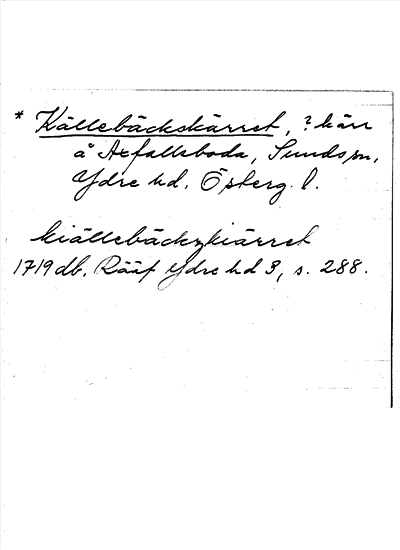 * Källebäckskärret, ? kärr
å Axfallsboda, Sunds sn,
Ydre hd, Österg. l.
kiällebäckzkiärret
1719 db, Rääf Ydre hd 3, s. 288.